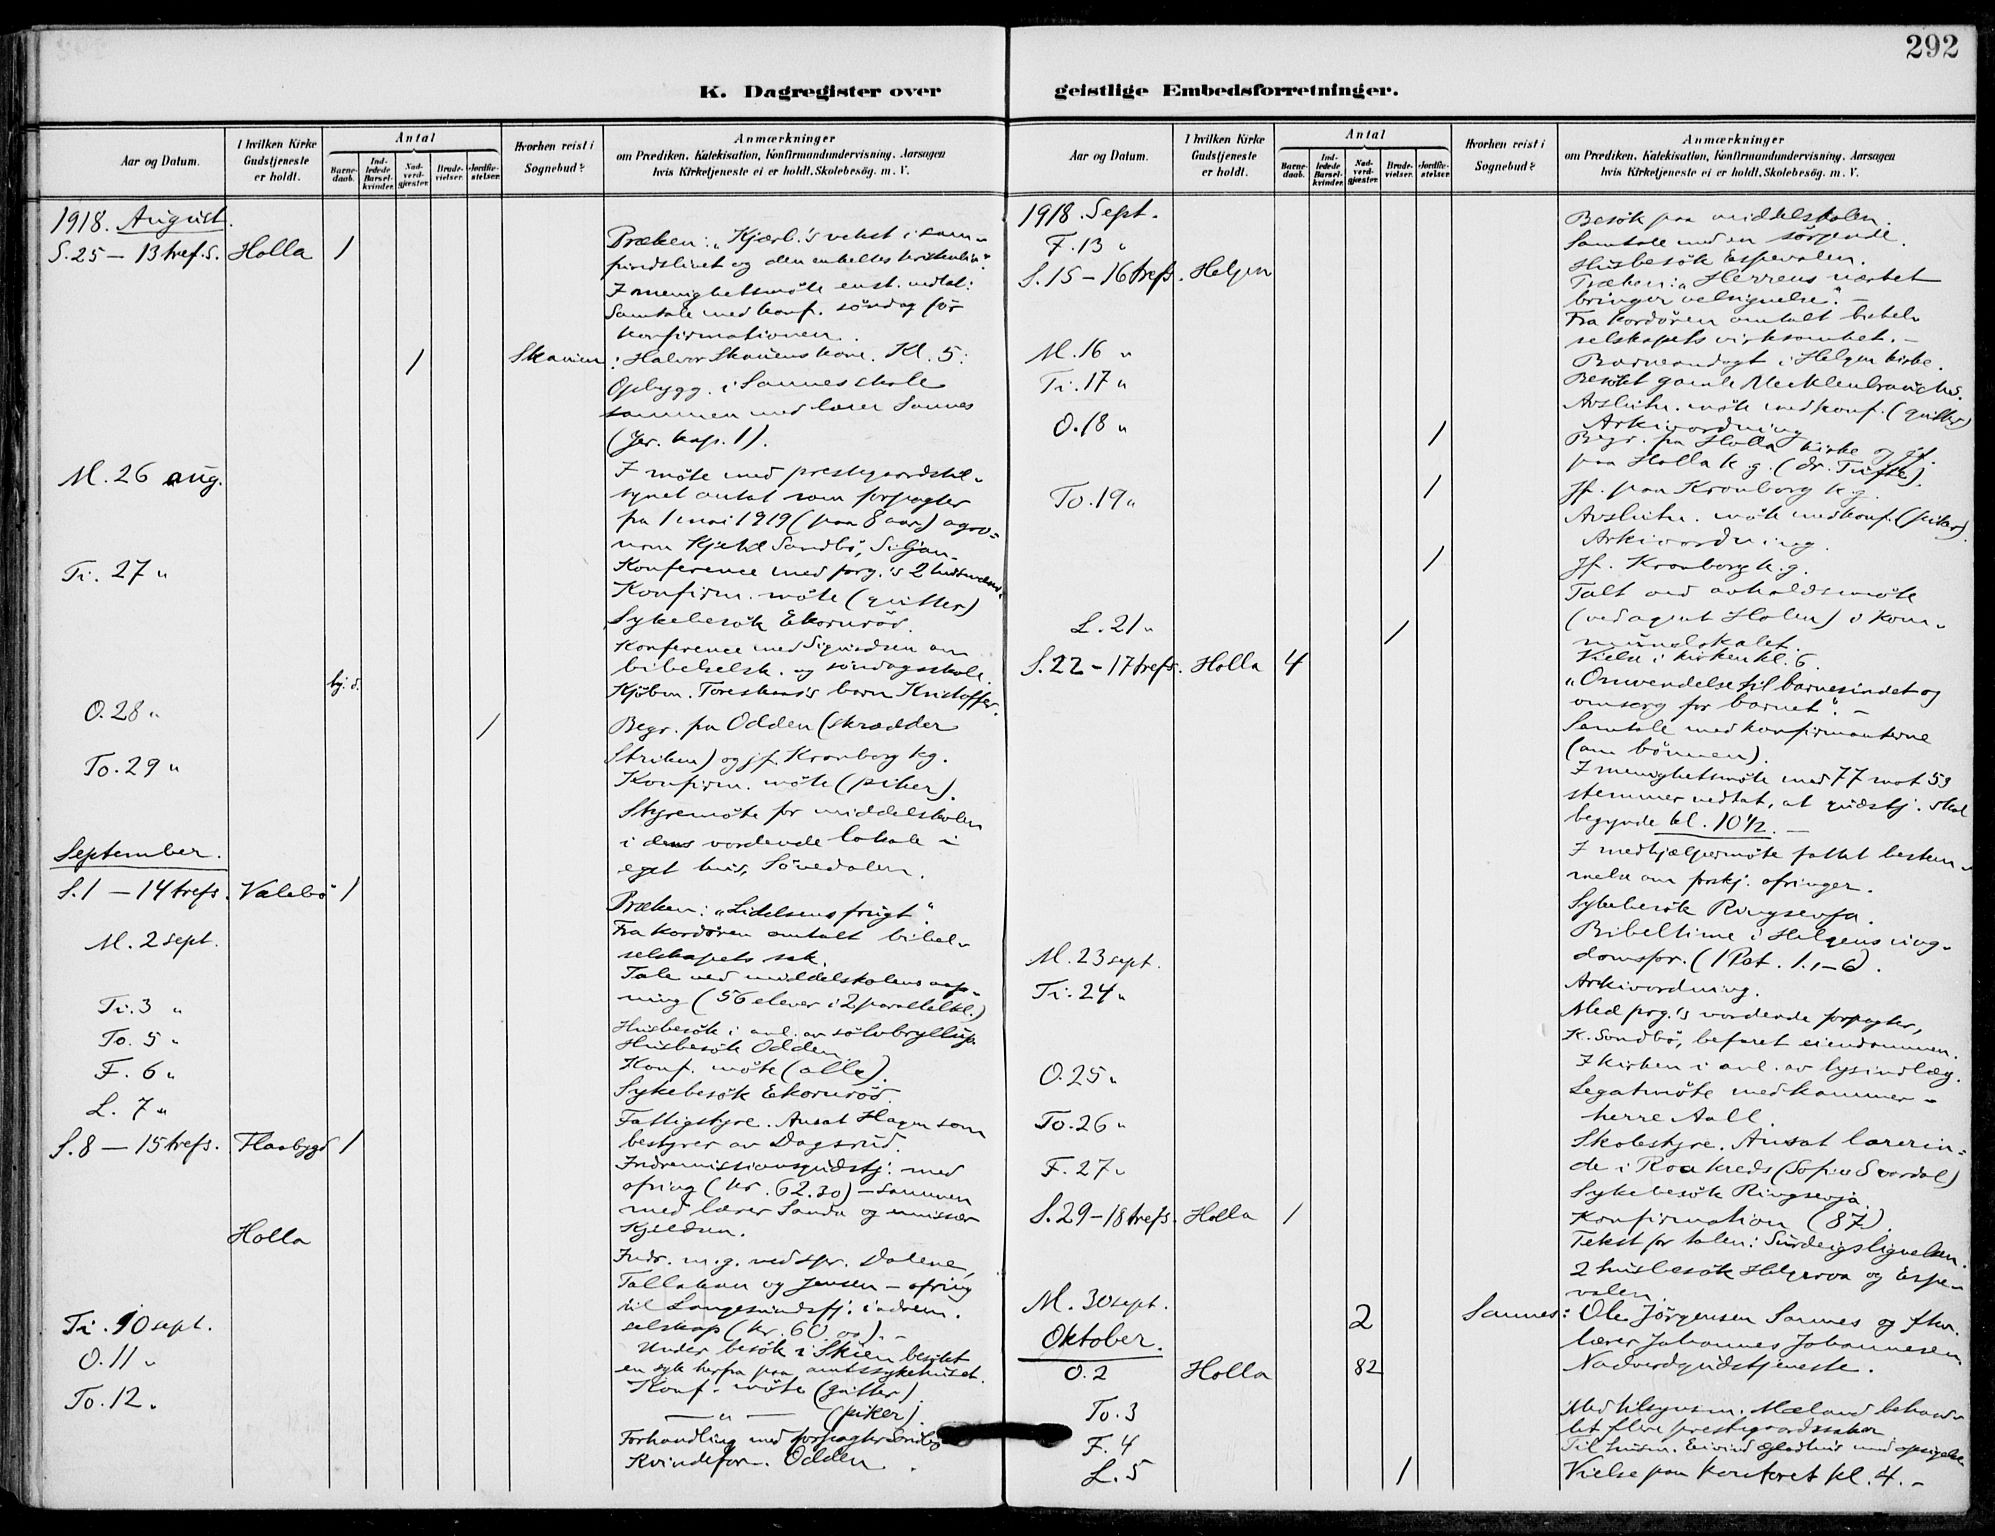 292
K. Dagregister over geistlige Embedsforretninger.
Aar og Datum.
I hvilken Kirke Gudstjeneste er holdt.
Antal
Barne-daab.
Ind-ledede Barsel-kvinder.
Nad-verd-gjæster.
Brude-vielser.
Jordfæ-stelser.
Hvorhen reist i Sognebud?
Anmærkninger
om Prædiken, Katekisation, Konfirmandundervisning, Aarsagen
hvis Kirketjeneste ei er holdt, Skolebesøg. m. V.
1918. August.
S. 25 – 13 tref. s. Holla 1
Præken: „Kjærl.'s vekst i sam-
fundslivet og den enkeltes
I menighetsmöte enst. vedtat:
Samtale med konf. söndag för
konfirmationen.
1 Skauen: Halvor Skauens kone. Kl. 5:
Opbygg. i Sannes skole
sammen med lærer Sannes
(Jer. kap. 1).
M. 26 aug.
I möte med prestegaardstil-
synet antat som forpagter
fra 1 mai 1919 (paa 8 aar) agro-
nom Kjetil Sandbö, Siljan.
Ti. 27 „
Konference med prg.'s 2 husmænd.
Konfirm. möte (gutter)
Sykebesök Ekornröd.
Konference med Sigurdsen om
bibelselsk. og söndagsskole.
hj. d.
Kjöbm. Foreskens's barn Kristoffer.
O. 28 „
1
Begr. fra Odden (skrædder
Striken) og jf. Kronborg kg.
To. 29 „
Konfirm. möte (piker).
Styremöte for middelskolen
i dens vordende lokale i
eget hus, Sövedalen.
September.
S. 1 – 14 trefs. Valebö 1
Præken: „Lidelsens frugt".
Fra kordören omtalt bibel-
selskapets sak.
M. 2 sept.
Tale ved middelskolens aap-
ning (56 elever i 2 parallelkl.)
Ti. 3 „
Husbesök i anl. av sölvbryllup.
Husbesök Odden.
To. 5 „
Konf. möte (alle).
F. 6 „
Sykebesök Ekornröd.
L. 7 „
Fattigstyre. Ansat Hagen som
bestyrer av Dagsrud.
S. 8 – 15 trefs. Flaabygd 1
Indremissionsgudstj. med
ofring (kr. 62.30) – sammen
med lærer Sanda og emissær
Kjeldsen.
Holla
Indr. m. g. ved spr. Dalene,
Tallaksen og Jensen – ofring
til Langesundsfj. indrem.
selskap (kr. 60.00). –
Ti. 10 sept.
Under besök i Skien besökt
en syk herfra paa amtssykehuset.
O. 11 „
Konf. möte (gutter).
To. 12 „
— „ — (piker).
Forhandling med forpagter Sandbö
Kvindefor. Odden.
Aar og Datum.
I hvilken Kirke Gudstjeneste er holdt.
Antal
Barne-daab.
Ind-ledede Barsel-kvinder.
Nad-verd-gjæster.
Brude-vielser.
Jordfæ-stelser.
Hvorhen reist i Sognebud?
Anmærkninger
om Prædiken, Katekisation, Konfirmandundervisning, Aarsagen
hvis Kirketjeneste ei er holdt, Skolebesøg. m. V.
1918. Sept.
Besök paa middelskolen.
F. 13 „
Samtale med en sörgende.
Husbesök Espevalen.
S. 15 – 16 trefs. Helgen
Præken: „Herrens nærhet
bringer velsignelse". –
Fra kordören omtalt bibel-
selskapets virksomhet. –
M. 16 „
Barneandagt i Helgen kirke.
Ti. 17 „
Besökt gamle Mecklenbraucks.
Avslutn. möte med konf. (gutter)
Arkivordning
O. 18 „
1
Begr. fra Holla kirke og jf.
paa Holla k. g. (dr. Tufte).
To. 19 „
1
Jf. paa Kronborg k. g.
Avslutn. möte med konf. (piker).
Arkivordning.
1
Jf. Kronborg k. g.
Talt ved avholdsmöte
(ved agent Holen) i kom-
munelokalet.
L. 21 „
1
Vielse i kirken kl. 6.
S. 22 – 17 trefs. Holla 4
„Omvendelse til barnesindet og
omsorg for barnet". –
Samtale med konfirmanterne
(om bönnen).
I menighetsmöte med 77 mot 53
stemmer vedtat, at gudstj. skal
begynde kl. 10½. –
I medhjælpermöte fattet bestem-
melse om forskj. ofringer.
Sykebesök Ringsevja.
Bibeltime i Helgens ung-
domsfor. (1 Pet. 1.,–6).
M. 23 sept.
Arkivordning.
Ti. 24 „
Med prg.'s vordende forpagter,
K. Sandbö, befaret eiendommen.
I kirken i anl. av lysindlæg.
O. 25 „
Legatmöte med kammer-
herre Aall.
To. 26 „
Skolestyre. Ansat lærerin-
de i Roa kreds (Sofie Svardal)
F. 27 „
Sykebesök Ringsevja.
S. 29 – 18 trefs. Holla 1
Konfirmation (87).
Tekst for talen: Surdeigslignelsen.
2 husbesök Helgeroa og Espe-
valen.
M. 30 sept.
2 Sannes: Ole Jörgensen Sannes og fhv.
lærer Johannes Johannesen.
Oktober.
O. 2 Holla 82
Nadverdgudstjeneste.
To. 3
Med tilsynsm. Mæland behand-
let flere prestegaardssaker
F. 4
Til husm. Eivind med opsigelse
L. 5
1
Vielse paa kontoret kl. 4. –